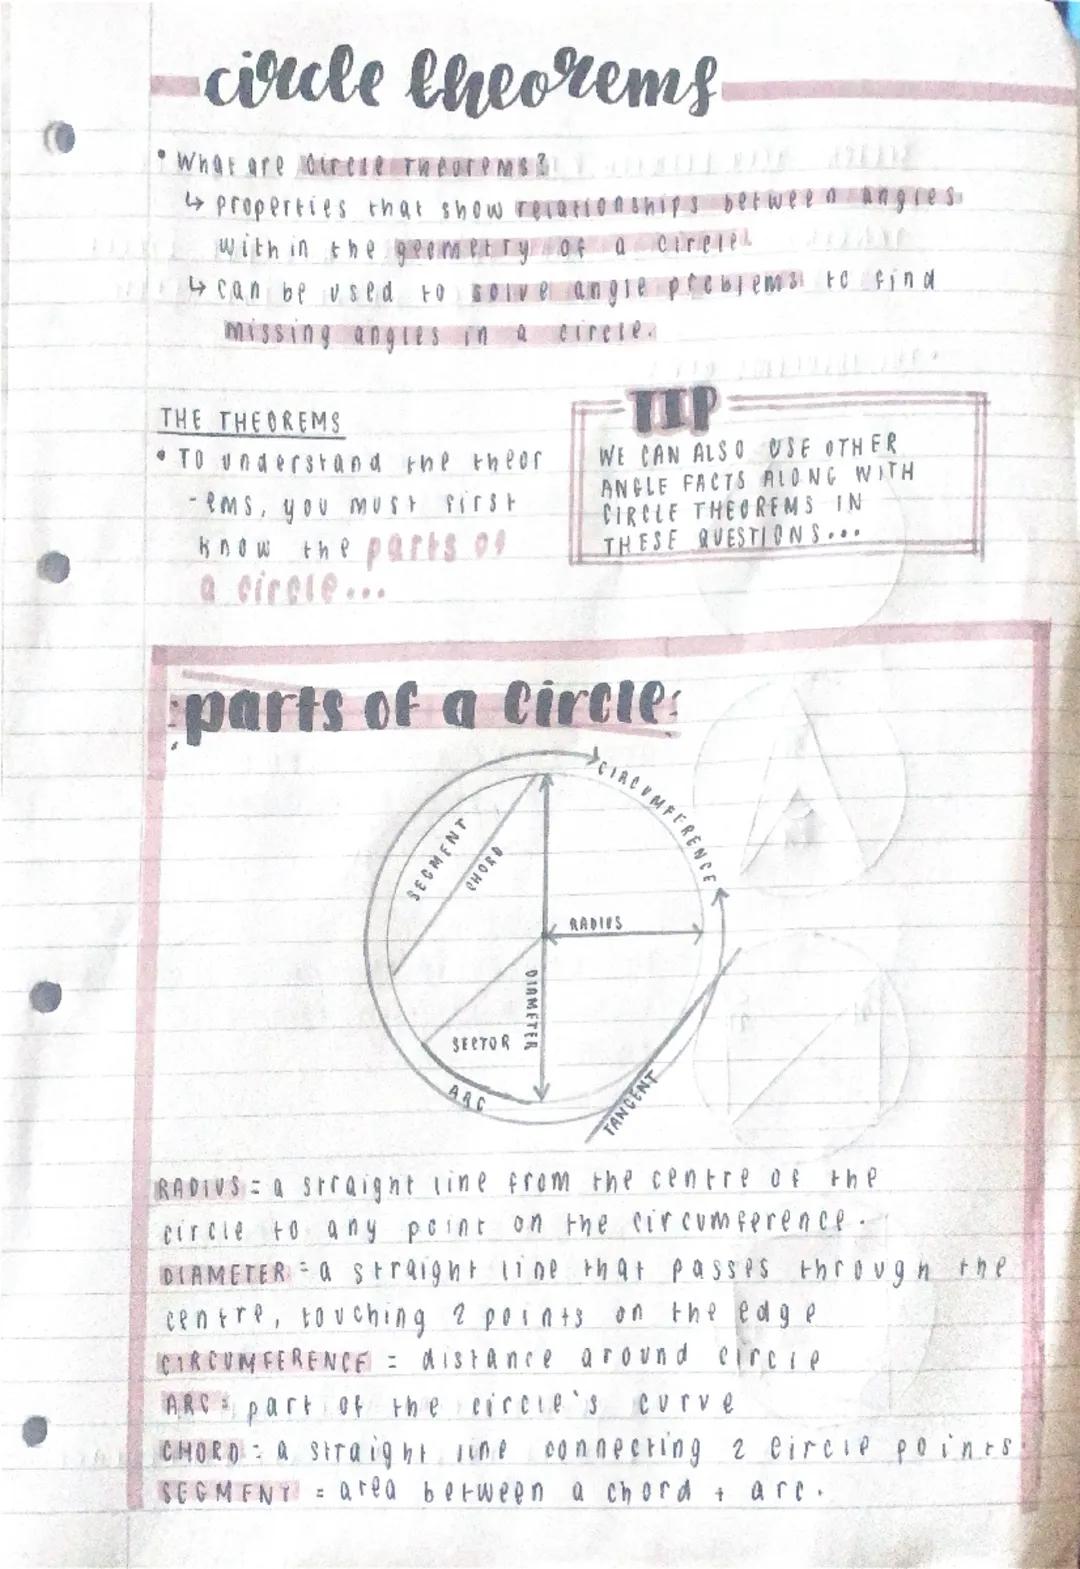 circle theorems
• What are circle theorems?
↳ properties that show relationships between angles
within the geometry of a circle.
↳ can be used to solve angle problems to find
missing angles in a circle.
THE THEOREMS
• TO understand the theor
-ems, you must first
know the parts of
a circle...
TIP
WE CAN ALSO USE OTHER
ANGLE FACTS ALONG WITH
CIRCLE THEOREMS IN
THESE QUESTIONS...
parts of a circle:
CIRCUMFERENCE
SEGMENT
CHORD
RADIUS
DIAMETER
SECTOR
ARC
TANGENT
RADIUS = a straight line from the centre of the
circle to any point on the circumference.
DIAMETER = a straight line that passes through the
centre, touching 2 points on the edge
CIRCUMFERENCE = distance around circle
ARC = part of the circle's curve
CHORD = a straight line connecting 2 circle points.
SEGMENT = area between a chord + arc.